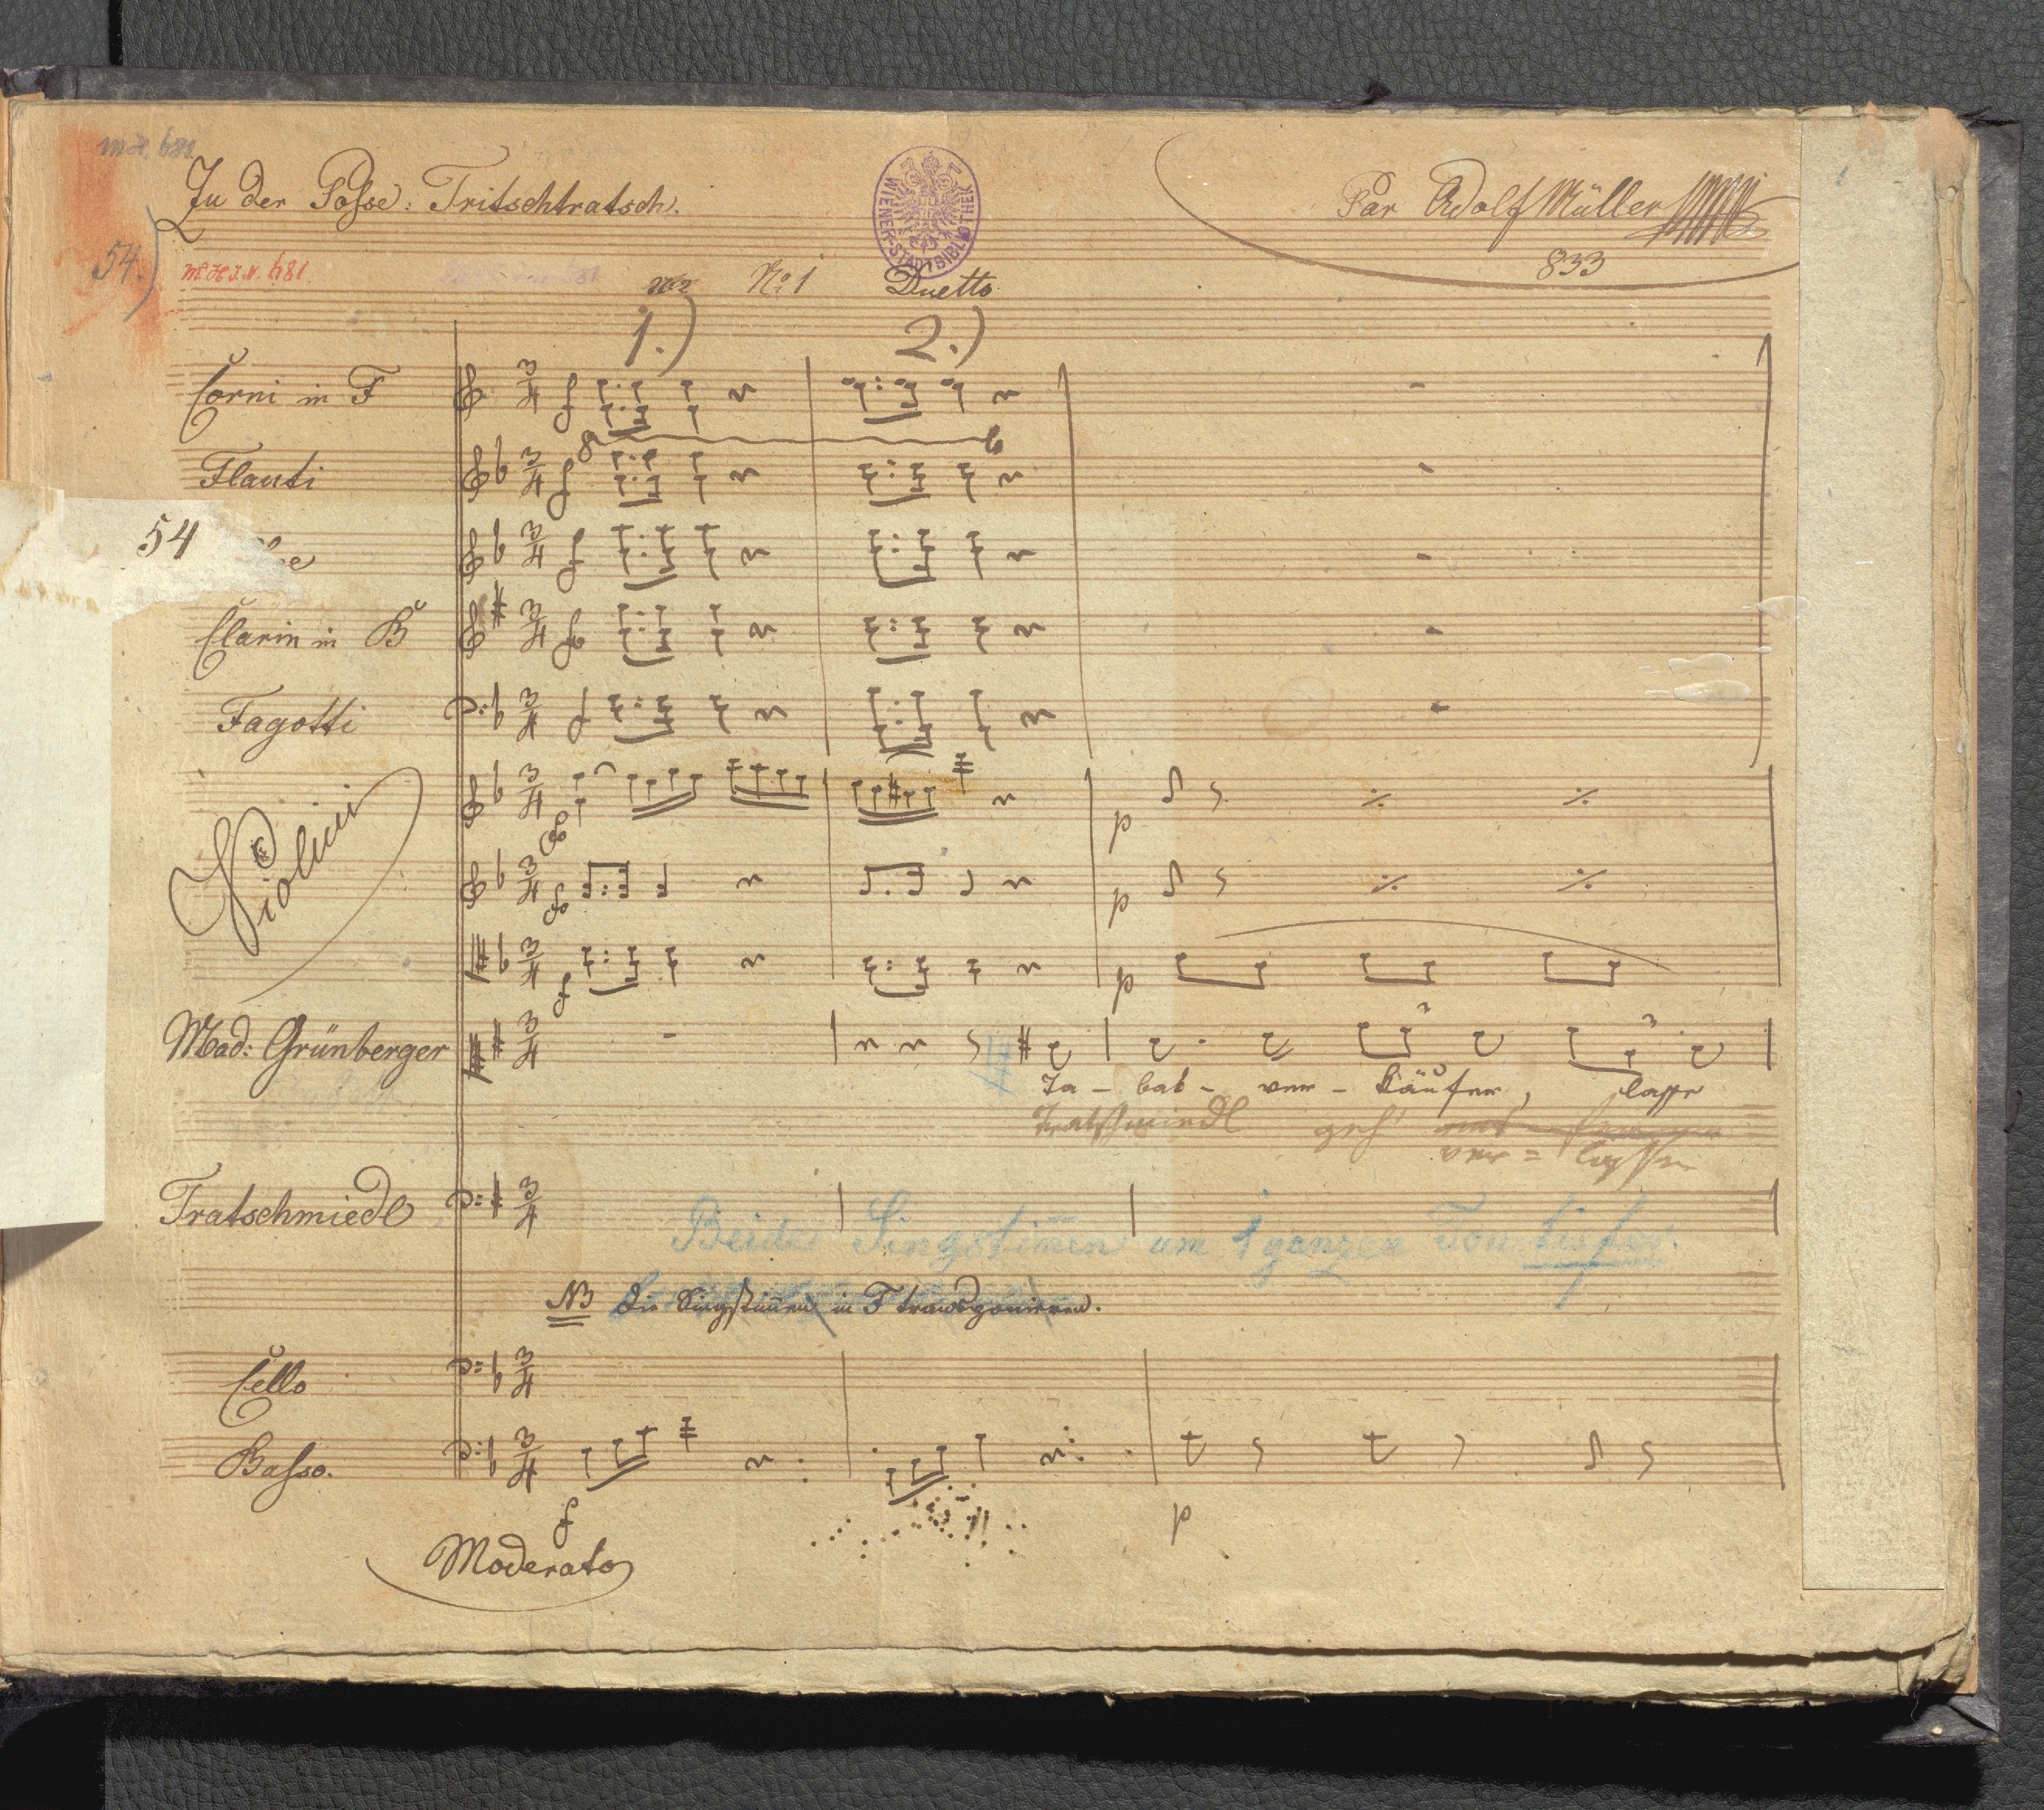 MH. 681
Zu der Posse: Tritschtratsch.
WIENER-STADTBIBLIOTHEK
Par Adolf Müller
833
54.)
MHI.N. 681
No 1 Duetto
1.) 2.)
Corni in F
8
Flauti
54
Clarin in B
Fagotti
Violini
Mad: Grünberger
Ta - bak - ver - käufer, lasse
Tratschmiedl geh'
ver = lassen
Tratschmiedl
Beide Singstim̄en um 1 ganzen Ton tiefer.
NB Die Singstim̄en in F transponieren.
Cello
Basso.
f
p
Moderato